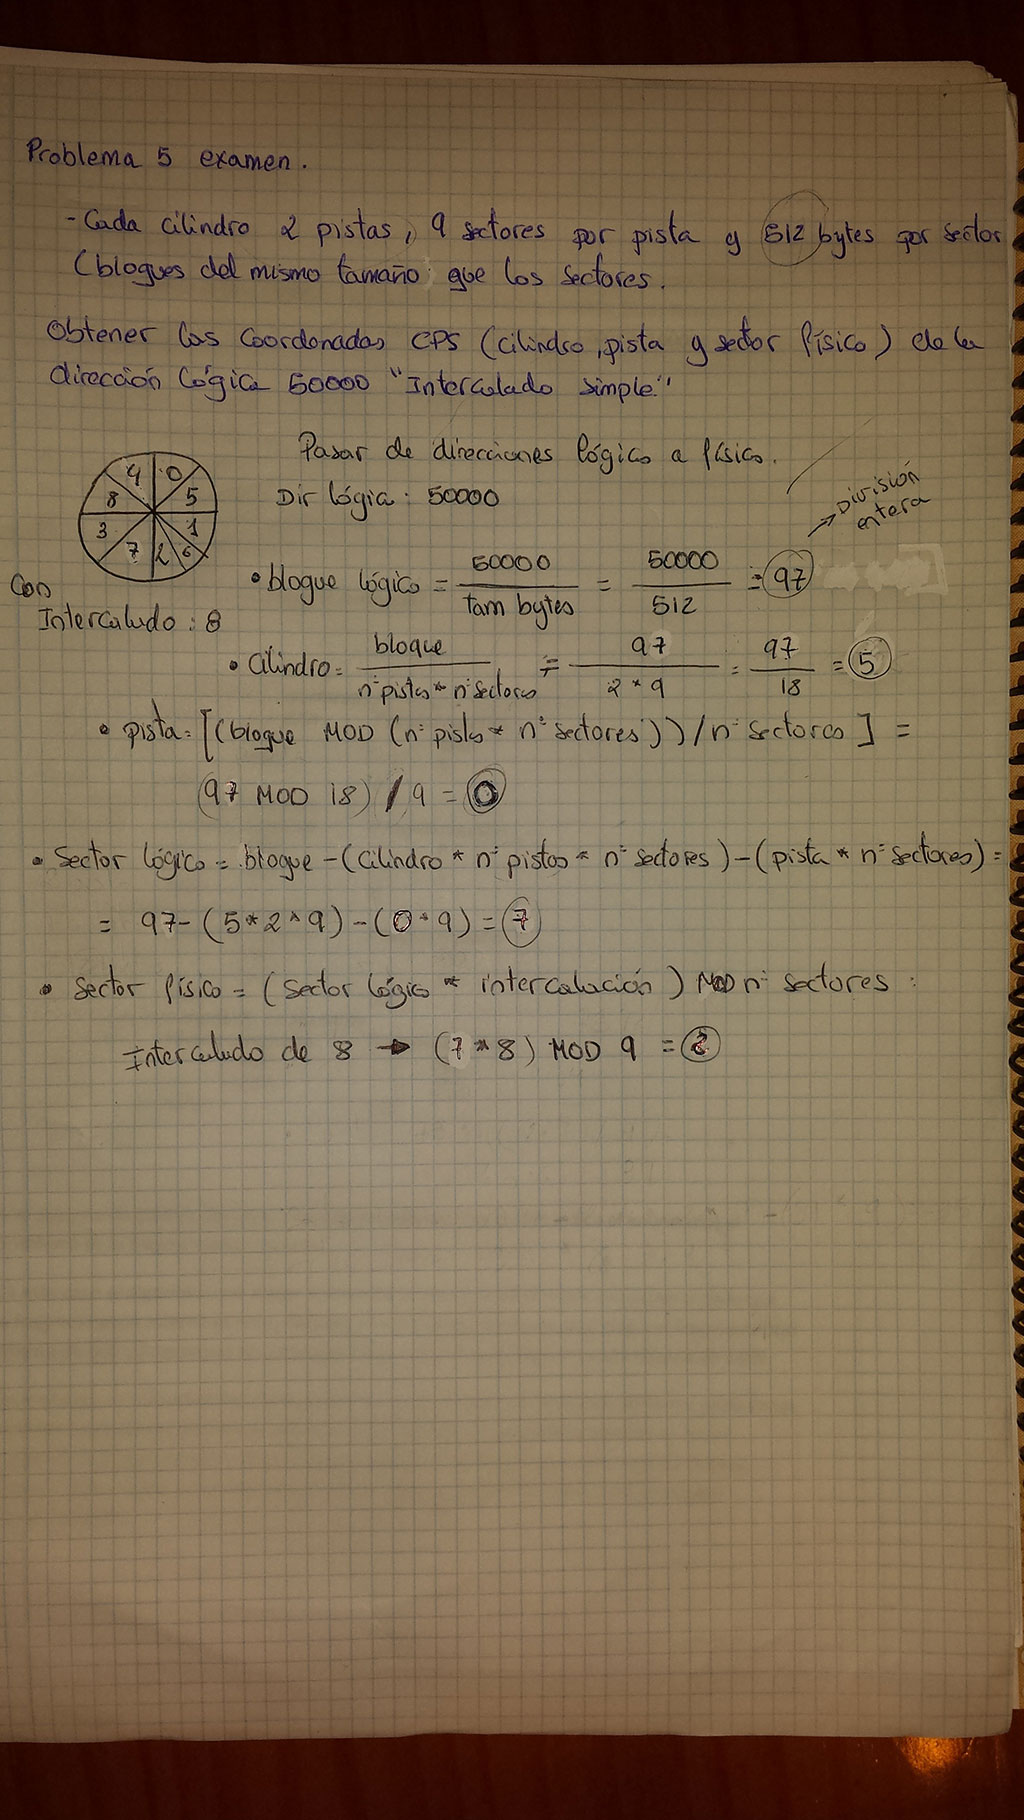 Problema 5 examen.
- Cada cilindro 2 pistas, 9 sectores por pista y 512 bytes por sector
(bloques del mismo tamaño que los sectores.
Obtener las coordenadas CPS (cilindro, pista y sector físico) de la
dirección lógica 50000 "Intercalado simple"
Pasar de direcciones lógico a físico.
Dir lógia: 50000
→ División
entera
4 0
8 5
3 1
7 2 6
Con
Intercalado: 8
• bloque lógico = 50000 / Tam bytes = 50000 / 512 = 97
• Cilindro = bloque / nº pistas * nº sectores = 97 / 2 * 9 = 97 / 18 = 5
• pista = [(bloque MOD (nº pistas * nº sectores)) / nº sectores] =
(97 MOD 18) / 9 = 0
• Sector lógico = bloque - (cilindro * nº pistas * nº sectores) - (pista * nº sectores) =
= 97 - (5 * 2 * 9) - (0 * 9) = 7
• Sector físico = (sector lógico * intercalación) MOD nº sectores :
Intercalado de 8 → (7 * 8) MOD 9 = 2